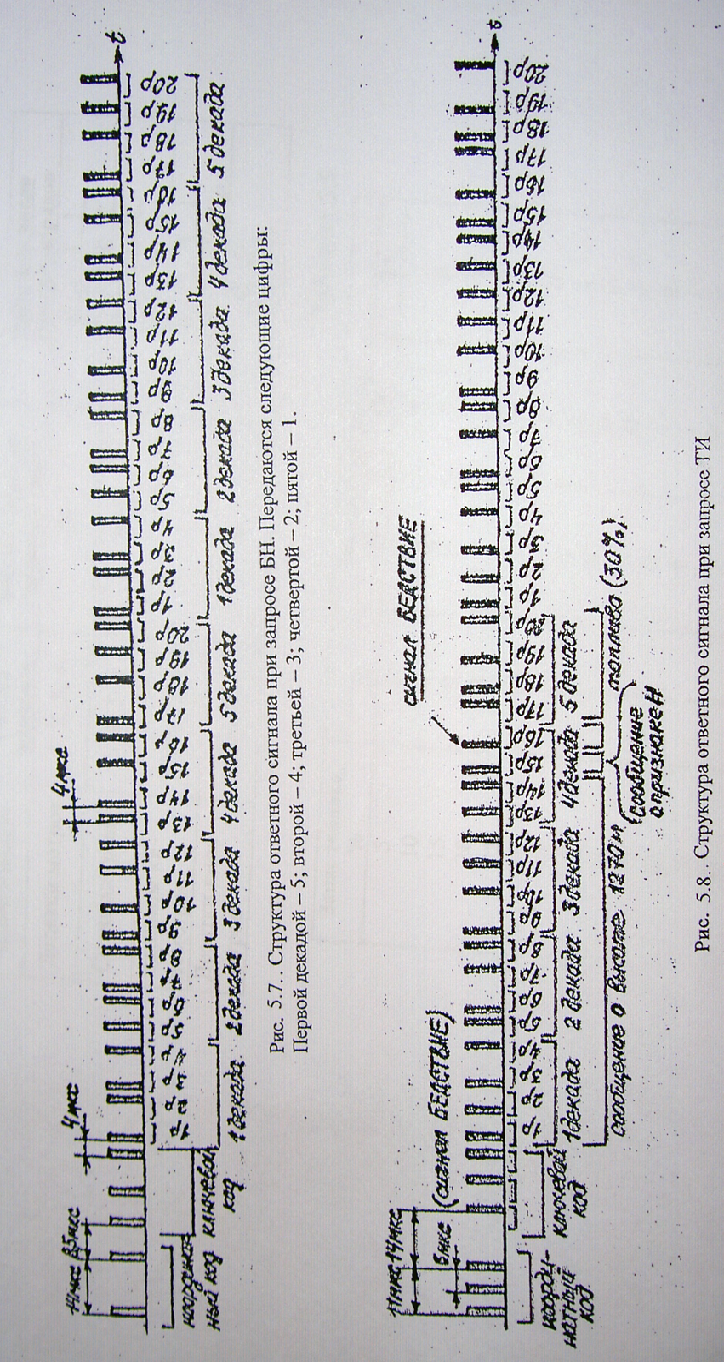 14 мкс 8,5 мкс
4 мкс
4 мкс
t
1р 2р 3р 4р 5р 6р 7р 8р 9р 10р 11р 12р 13р 14р 15р 16р 17р 18р 19р 20р 1р 2р 3р 4р 5р 6р 7р 8р 9р 10р 11р 12р 13р 14р 15р 16р 17р 18р 19р 20р
координат
ный код
ключевой
код
1 декада 2 декада 3 декада 4 декада 5 декада 1 декада 2 декада 3 декада 4 декада 5 декада
Рис. 5.7. . Структура ответного сигнала при запросе БН. Передаются следующие цифры:
Первой декадой – 5; второй – 4; третьей – 3; четвертой – 2; пятой – 1.
11 мкс 14 мкс
6 мкс
(сигнал БЕДСТВИЕ)
сигнал БЕДСТВИЕ
t
1р 2р 3р 4р 5р 6р 7р 8р 9р 10р 11р 12р 13р 14р 15р 16р 17р 18р 19р 20р 1р 2р 3р 4р 5р 6р 7р 8р 9р 10р 11р 12р 13р 14р 15р 16р 17р 18р 19р 20р
коорди-
натный
код
ключевой
код
1 декада 2 декада 3 декада 4 декада 5 декада
сообщение о высоте 1270 м
топливо (30%)
(сообщение
о признаке Н
Рис. 5.8. . Структура ответного сигнала при запросе ТИ